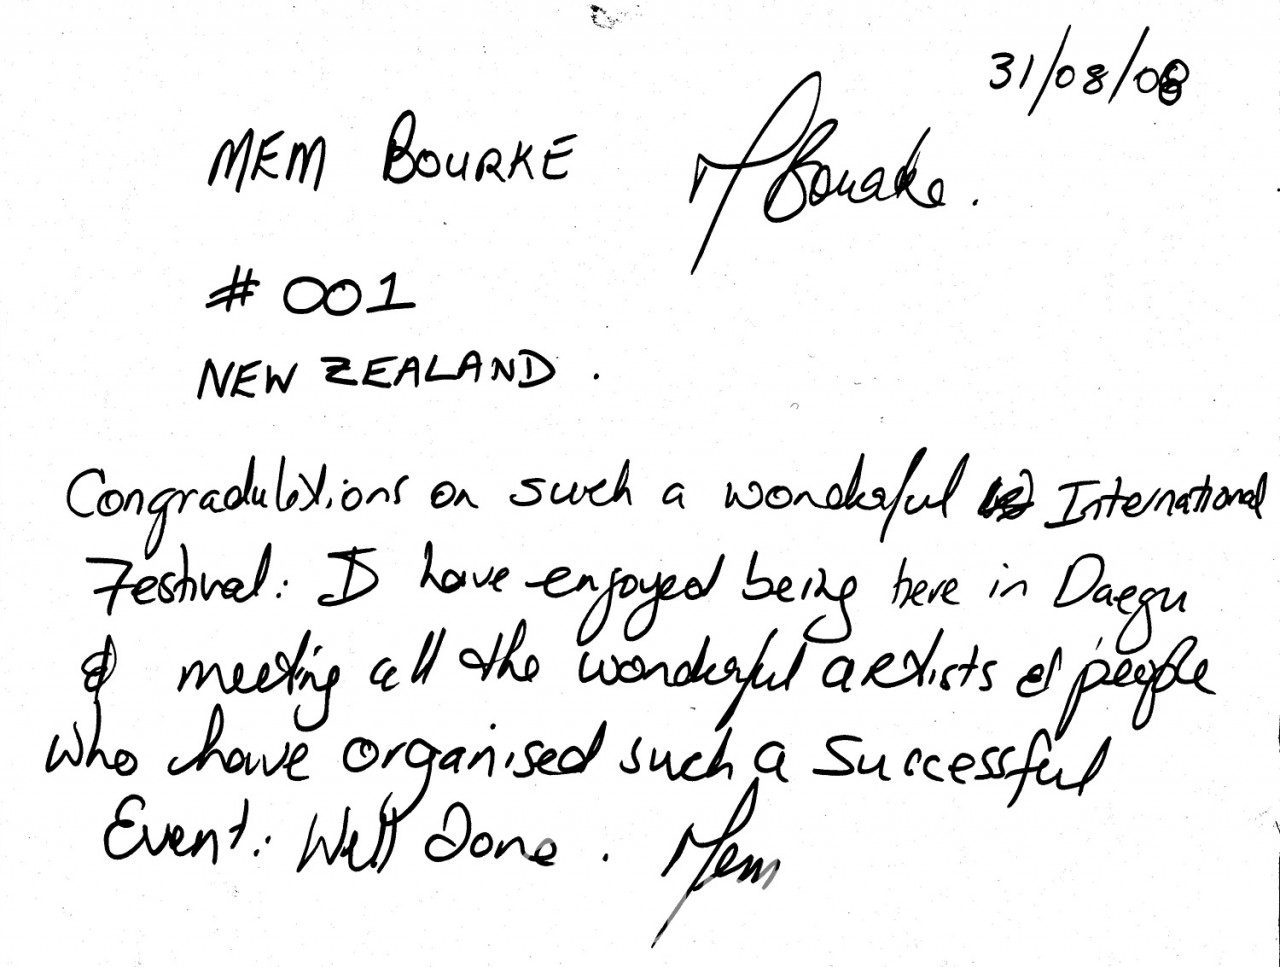 31/08/08
MEM BOURKE MBourke.
#001
NEW ZEALAND.
Congradulations on such a wonderful International
Festival. I have enjoyed being here in Daegu
& meeting all the wonderful artists & people
who have organised such a successful
Event. Well Done. Mem